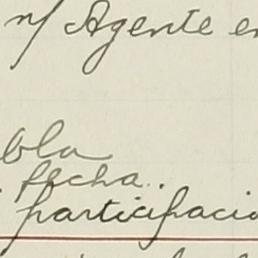 n/ Agente en
bla
fecha.
participacio